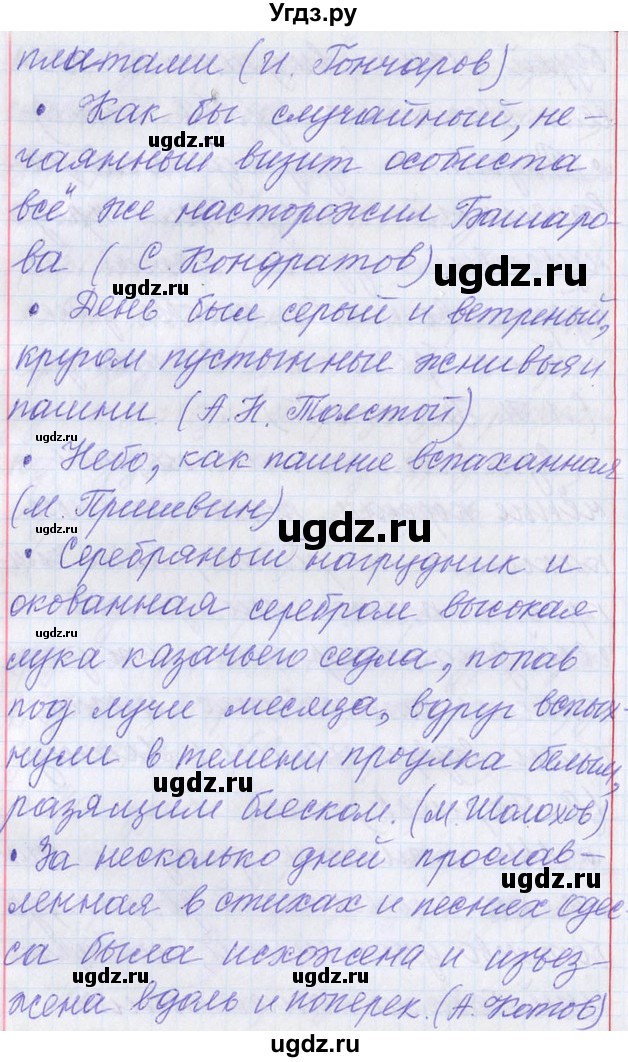 Угдз.ру
платами. (И. Гончаров)
• Как бы случайный, не-
ugdz.ru
чаянный визит особиста
всё же насторожил Башаро-
ва ( С. Кондратов)
ugdz.ru
• День был серый и ветреный,
кругом пустынные жнивья и
пашни. (А. Н. Толстой)
ugdz.ru
• Небо, как пашня вспаханная
(М. Пришвин)
ugdz.ru
• Серебряный нагрудник и
окованная серебром высокая
ugdz.ru
лука казачьего седла, попав
под лучи месяца, вдруг вспых-
нули в темени проулка белым,
ugdz.ru
разящим блеском. (М. Шолохов)
• За несколько дней прослав-
ugdz.ru
ленная в стихах и песнях Одес-
са была исхожена и изъез-
ugdz.ru
ugdz.ru
жена вдоль и поперек. (А. Котов)
ugdz.ru